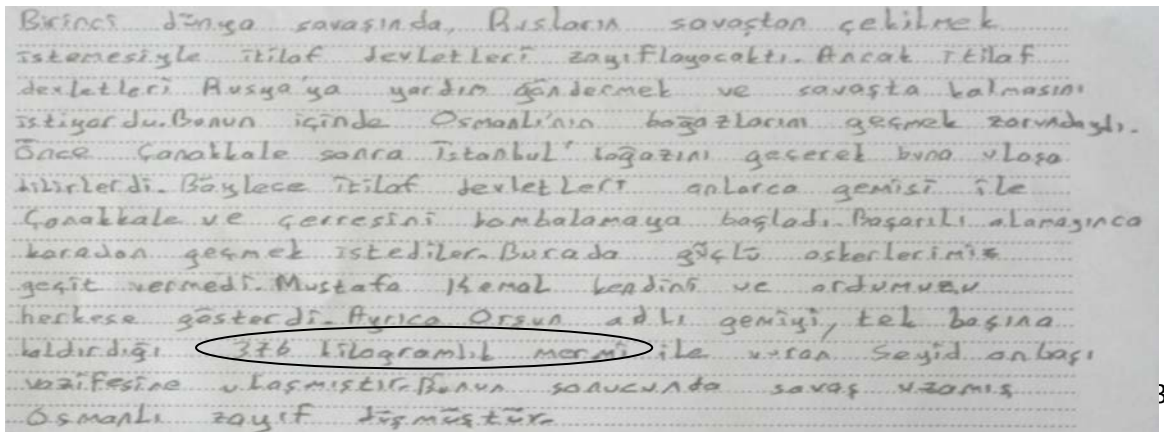 Birinci dünya savaşında, Rusların savaştan çekilmek
istemesiyle itilaf devletleri zayıflayacaktı. Ancak itilaf
devletleri Rusya'ya yardım göndermek ve savaşta kalmasını
istiyordu. Bunun içinde Osmanlı'nın boğazlarını geçmek zorundaydı.
Önce Çanakkale sonra İstanbul' boğazını geçerek buna ulaşa
bilirlerdi. Böylece itilaf devletleri onlarca gemisi ile
Çanakkale ve çevresini bombalamaya başladı. Başarılı olamayınca
karadan geçmek istediler. Burada güçlü askerlerimiz
geçit vermedi. Mustafa Kemal kendini ve ordumuzu
herkese gösterdi. Ayrıca Orsun adlı gemiyi, tek başına
kaldırdığı 376 kilogramlık mermi ile vuran Seyid onbaşı
vazifesine ulaşmıştır. Bunun sonucunda savaş uzamış
Osmanlı zayıf düşmüştür.
3